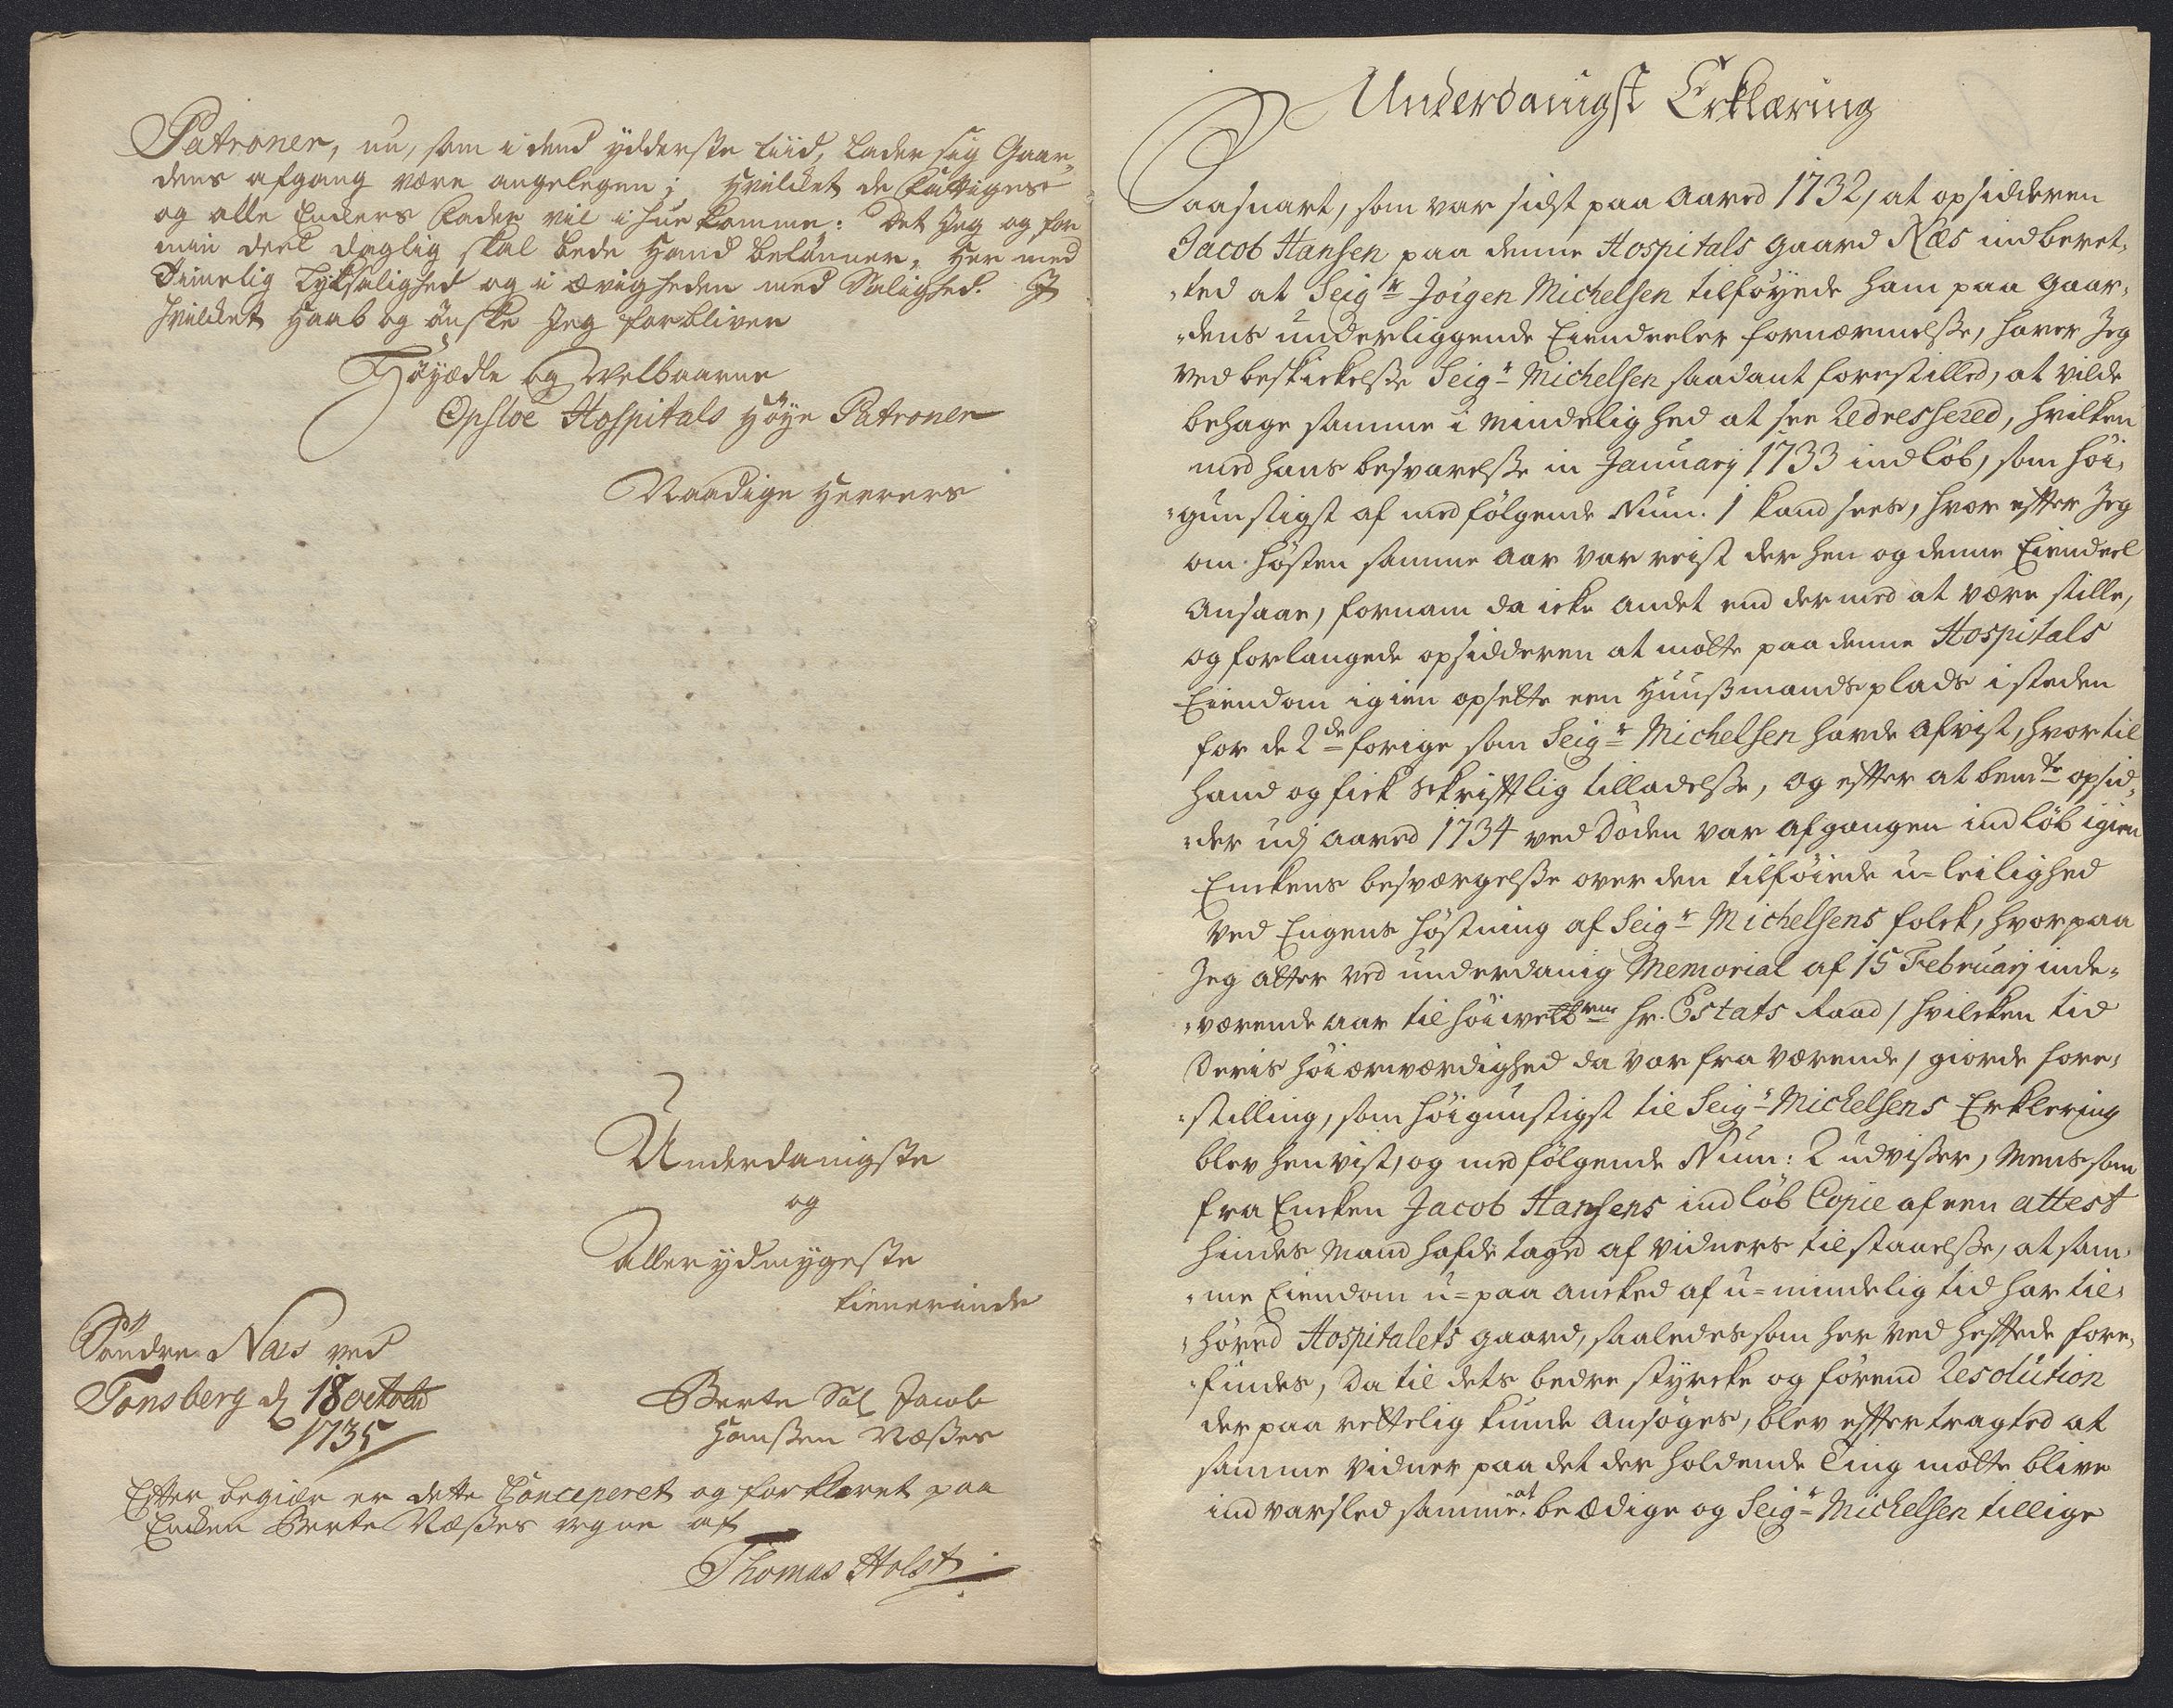 Patroner, nu, som i dend ydderste tiid, lader sig Gaar„
dens afgang være angelegen; hvilcket de Fattiges
og alle Enckers Fader vil ihuekomme: Det Jeg og for
min deel daglig skal bede Hand belønner, Her med
Timelig Lyksalighed og i Ævigheden med Salighed. I
hvilcket Haab og ønske Jeg forbliver
Høyædle og Velbaarne
Opsloe Hospitals Høye Patroner
Naadige Herrers
Underdanigste
og
Allerydmygeste
tienerinde
Søndre Næs ved
Tonsberg d 18 octobr
1735
Berte Sal Jacob
Hanssen Næsses
Efter begiær er dette Conciperet og forklaret paa
Encken Berte Næsses vegne af
Thomas Holst
Underdanigst Erklæring
Saasnart, som var sidst paa Aared 1732, at opsidderen
Jacob Hansen paa denne Hospitals gaard Næs indberet„
„ted at Seigr Jørgen Michelsen tilføyede ham paa gaar„
„dens underliggende Eiendeeler fornærmelsse, haver Jeg
ved beskickelsse Seigr Michelsen saadant forestilled, at vilde
behage samme i mindelighed at see Redressered, hvilken
med hans besvarelsse in Januarij 1733 indløb, som høi„
„gunstigst af medfølgende Num. 1 kand sees, hvor effter Jeg
om høsten samme aar var reist der hen og denne Eiendeel
Ansaae, fornam da icke andet end dermed at være stille,
og forlangede opsidderen at motte paa denne Hospitals
Eiendom igien opsette een Huussmands plads i steden
for de 2de forige som Seigr Michelsen havde afvist, hvortil
hand og fick skrifftlig tilladelsse, og effter at bemte opsid„
„der udj aared 1734 ved Døden var afgangen indløb igien
Enckens besværgelsse over den tilføiede u-leilighed
ved Engens høstning af Seigr Michelsens folck, hvorpaa
Jeg atter ved underdanig Memorial af 15 Februarij inde„
„værende aar til høiwelbrne hr. Estats Raad / hvilcken tid
Deris høiærværdighed da var fraværende / giorde fore„
„stilling, som høigunstigst til Seigr Michelsens Erklering
blev henvist, og medfølgende Num: 2 udvisser, Mens som
fra Encken Jacob Hansens indløb Copie af een attest
hindes Mand hafde taged af vidners tilstaaelsse, at sam„
„me Eiendom u-paa ancked af u-mindelig tid har til„
„høred Hospitalets gaard, saaledes som her ved hefftede fore„
„findes, Da til dets bedre styrcke og førend Resolution
der paa rettelig kunde ansøges, blev effter tragted at
samme vidner paa det der holdende Ting motte blive
ind varsled samme at beædige og Seigr Michelsen tillige